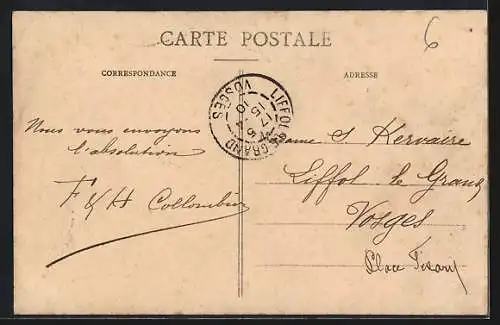 CARTE POSTALE
6
CORRESPONDANCE
ADRESSE
LIFFOL-LE-GRAND
VOSGES
17
15 - 5
10
Nous vous envoyons
l'absolution
F & H Collombier
Mme S. Kervaire
Liffol le Grand
Vosges
Place